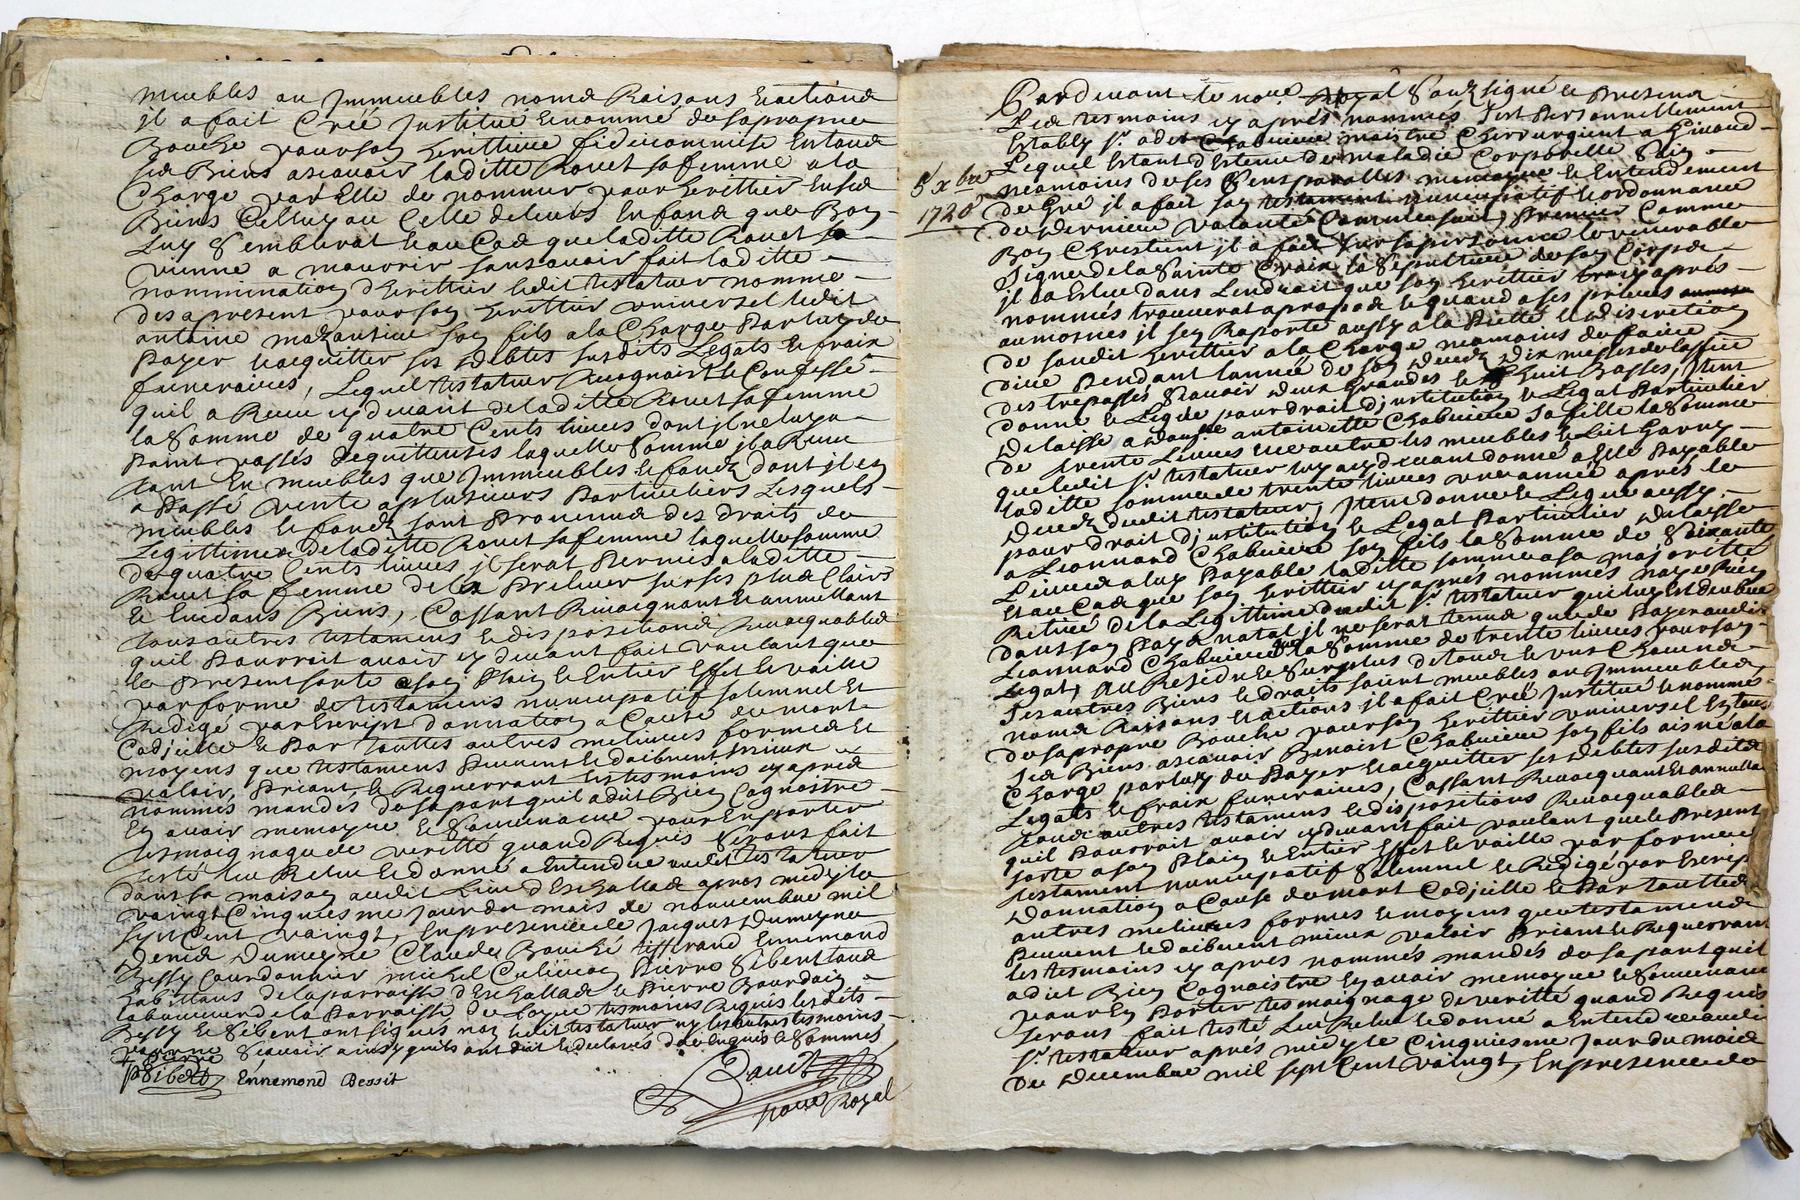 meubles ou Jmmeubles noms Raisons & actions
jl a fait Creé Justitué & nommé de sa propre
Bouche pour son herittiere fideicommise En tous
ses Biens ascauoir laditte Rouet sa femme a la
Charge par Elle de nommer pour herittier En ses
Biens Celluy ou Celle de leurs Enfans que Bon
Luy Semblerat & au Cas que laditte Rouet
vienne a mourir sans auoir fait laditte
nommination d'herittier ledit testateur nomme
des apresent pour son herittier vniuersel ledit
antoine son fils a la Charge Par luy de
Payer & acquitter ses debtes susdits Legats & frais
funeraires, Lequel testateur Recognoist & Confesse
quil a Receu cy deuant de laditte Rouet sa femme
la Somme de quatre Cents liures dont jl ne luy a
Point passés de quittences laquelle Somme jl a Receu
tant En meubles que Jmmeubles & fonds dont jl en
a Passé vente a plusieurs Particuliers Lesquels
meubles & fonds sont Prouenus des droits de
Legittimes de laditte Rouet sa femme laquelle somme
de quatre Cents liures jl serat Permis a laditte
Rouet sa femme de les Preleuer sur ses plus Clairs
& liquides Biens, Cassant Reuocquant & annullant
tous autres testamens & dispositions Reuocquables
quil Pourroit auoir cy deuant fait voulant que
le Present sorte a son Plain & Entier Effet & vaille
par forme de testament nuncupatif solemnel Et
Redigé par Escript donnation a Cause de mort
Codjcille & Par touttes autres melieures formes Et
moyens que testamens Peuuent & doibuent mieux
valoir, Priant & Requerrant les tesmoins cy aprés
nommés mandés de sa part quil a dit Bien Cognoistre
En auoir memoyre & Souuenance pour En porter
tesmoignage de veritté quand Requis Serons fait
testé leu Releu & donné a Entendre audit testateur
dans sa maison audit Lieu d'Eschallas apres midy le
vaingt Cinquiesme Jour du mois de nouuembre mil
sept Cent vaingt, En presence de Jacques Dumeyne
Denis Dumeyne Claude Bouché tisserand Ennemond
Bessy Courdonnier michel Pierre Sibert tous
habittans de la parroisse d'Eschallas & Pierre Bourdoin
laboureur de la Parroisse de tesmoins Requis lesdits
Bessy & Sibert ont signés non ledit testateur ny les autres tesmoins
pour ne Scauoir ainsy quils ont dit & declarés de ce Enquis & Sommés
Pierre
PSibert Ennemond Bessit
noue Royal
5e xbre
1720
Pardeuant le noue Royal Soubsigné & Presens
Les tesmoins cy aprés nommés Sest Personnellement
Estably Sr Chabuiere maistre Chirurgient a
Lequel Estant d'Estenu de maladie Corporelle Sain
neamoins de ses Sens memoyre & Entendement
de Gré jl a fait son testament nuncupatif & ordonnance
de derniere volonté Comme sensuit, Premier Comme
Bon Chrestient jl a fait sur sa personne le venerable
Signe de la Sainte Croix la Sepulture de son Corps
jl la Esleu dans Lendroit que son herittier cy aprés
nommés trouuerat apropos & quand a ses prieres
aumosnes jl s'en Raporte aussy a la Pietté & discretion
de soudit herittier a la Charge neamoins de faire
dire Pendant lannée de son deceds dix messes de
des trepassés Scauoir deux Grandes & huit Basses, Jtem
donne & Legue pour droit d'jnstitution & Legat Particulier
delaisse a antoinette Chabuiere sa fille la Somme
de trente Liures outre les meubles & Lict Garny
que ledit Sr testateur luy a cy deuant donné a Elle Payable
laditte somme de trente liures vne année aprés le
deceds dudit testateur, Jtem donne & Legue aussy
pour droit d'jnstitution & Legat Particulier delaisse
a Leonnard Chabuiere son fils la Somme de Soixante
Liures a luy Payable laditte somme a sa majoritté
Et au Cas que son herittier cy aprés nommés naye Rien
Retiré de la Legittime dudit Sr testateur qui luy est deubüe
dans son Pays natal jl ne serat tenu que de Payer audit
Leonnard Chabuiere que la Somme de trente liures pour son
Legat, Au Residu & Surplus de tous & vns Chacuns
Ses autres Biens & droits soient meubles ou Jmmeubles
noms Raisons & actions jl a fait Creé Justitué & nommé
de sa propre Bouche pour son herittier vniuersel En tous
Ses Biens ascauoir Benoist Chabuiere son fils aisné a la
Charge par luy de Payer & acquitter ses debtes susdits
Legats & frais funeraires, Cassant Reuocquant Et annullant
tous autres testamens & dispositions Reuocquables
quil Pourroit auoir cy deuant fait voulant que le Present
sorte a son Plain & Entier Effet & vaille par forme de
testament nuncupatif Solemnel & Redigé par Escript
donnation a Cause de mort Codjcille & Par touttes
autres melieures formes & moyens que testamens
Peuuent & doibuent mieux valoir Priant & Requerrant
les tesmoins cy aprés nommés mandés de sa part quil
a dit Bien Cognoistre En auoir memoyre & Souuenance
pour En Porter tesmoignage de veritté quand Requis
serons fait testé Leu Releu & donné a Entendre audit
Sr testateur aprés midy le Cinquiesme Jour du mois
de decembre mil sept Cent vaingt, En presence de